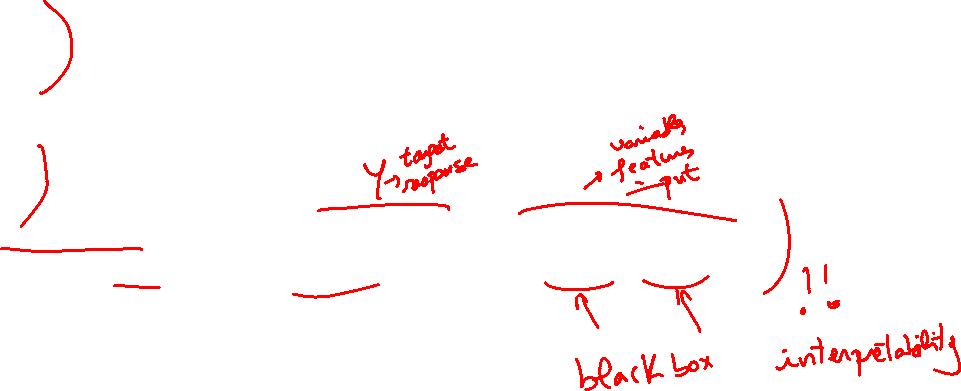 Y → target
response
→ variables
features
input
!!
black box
interpretability